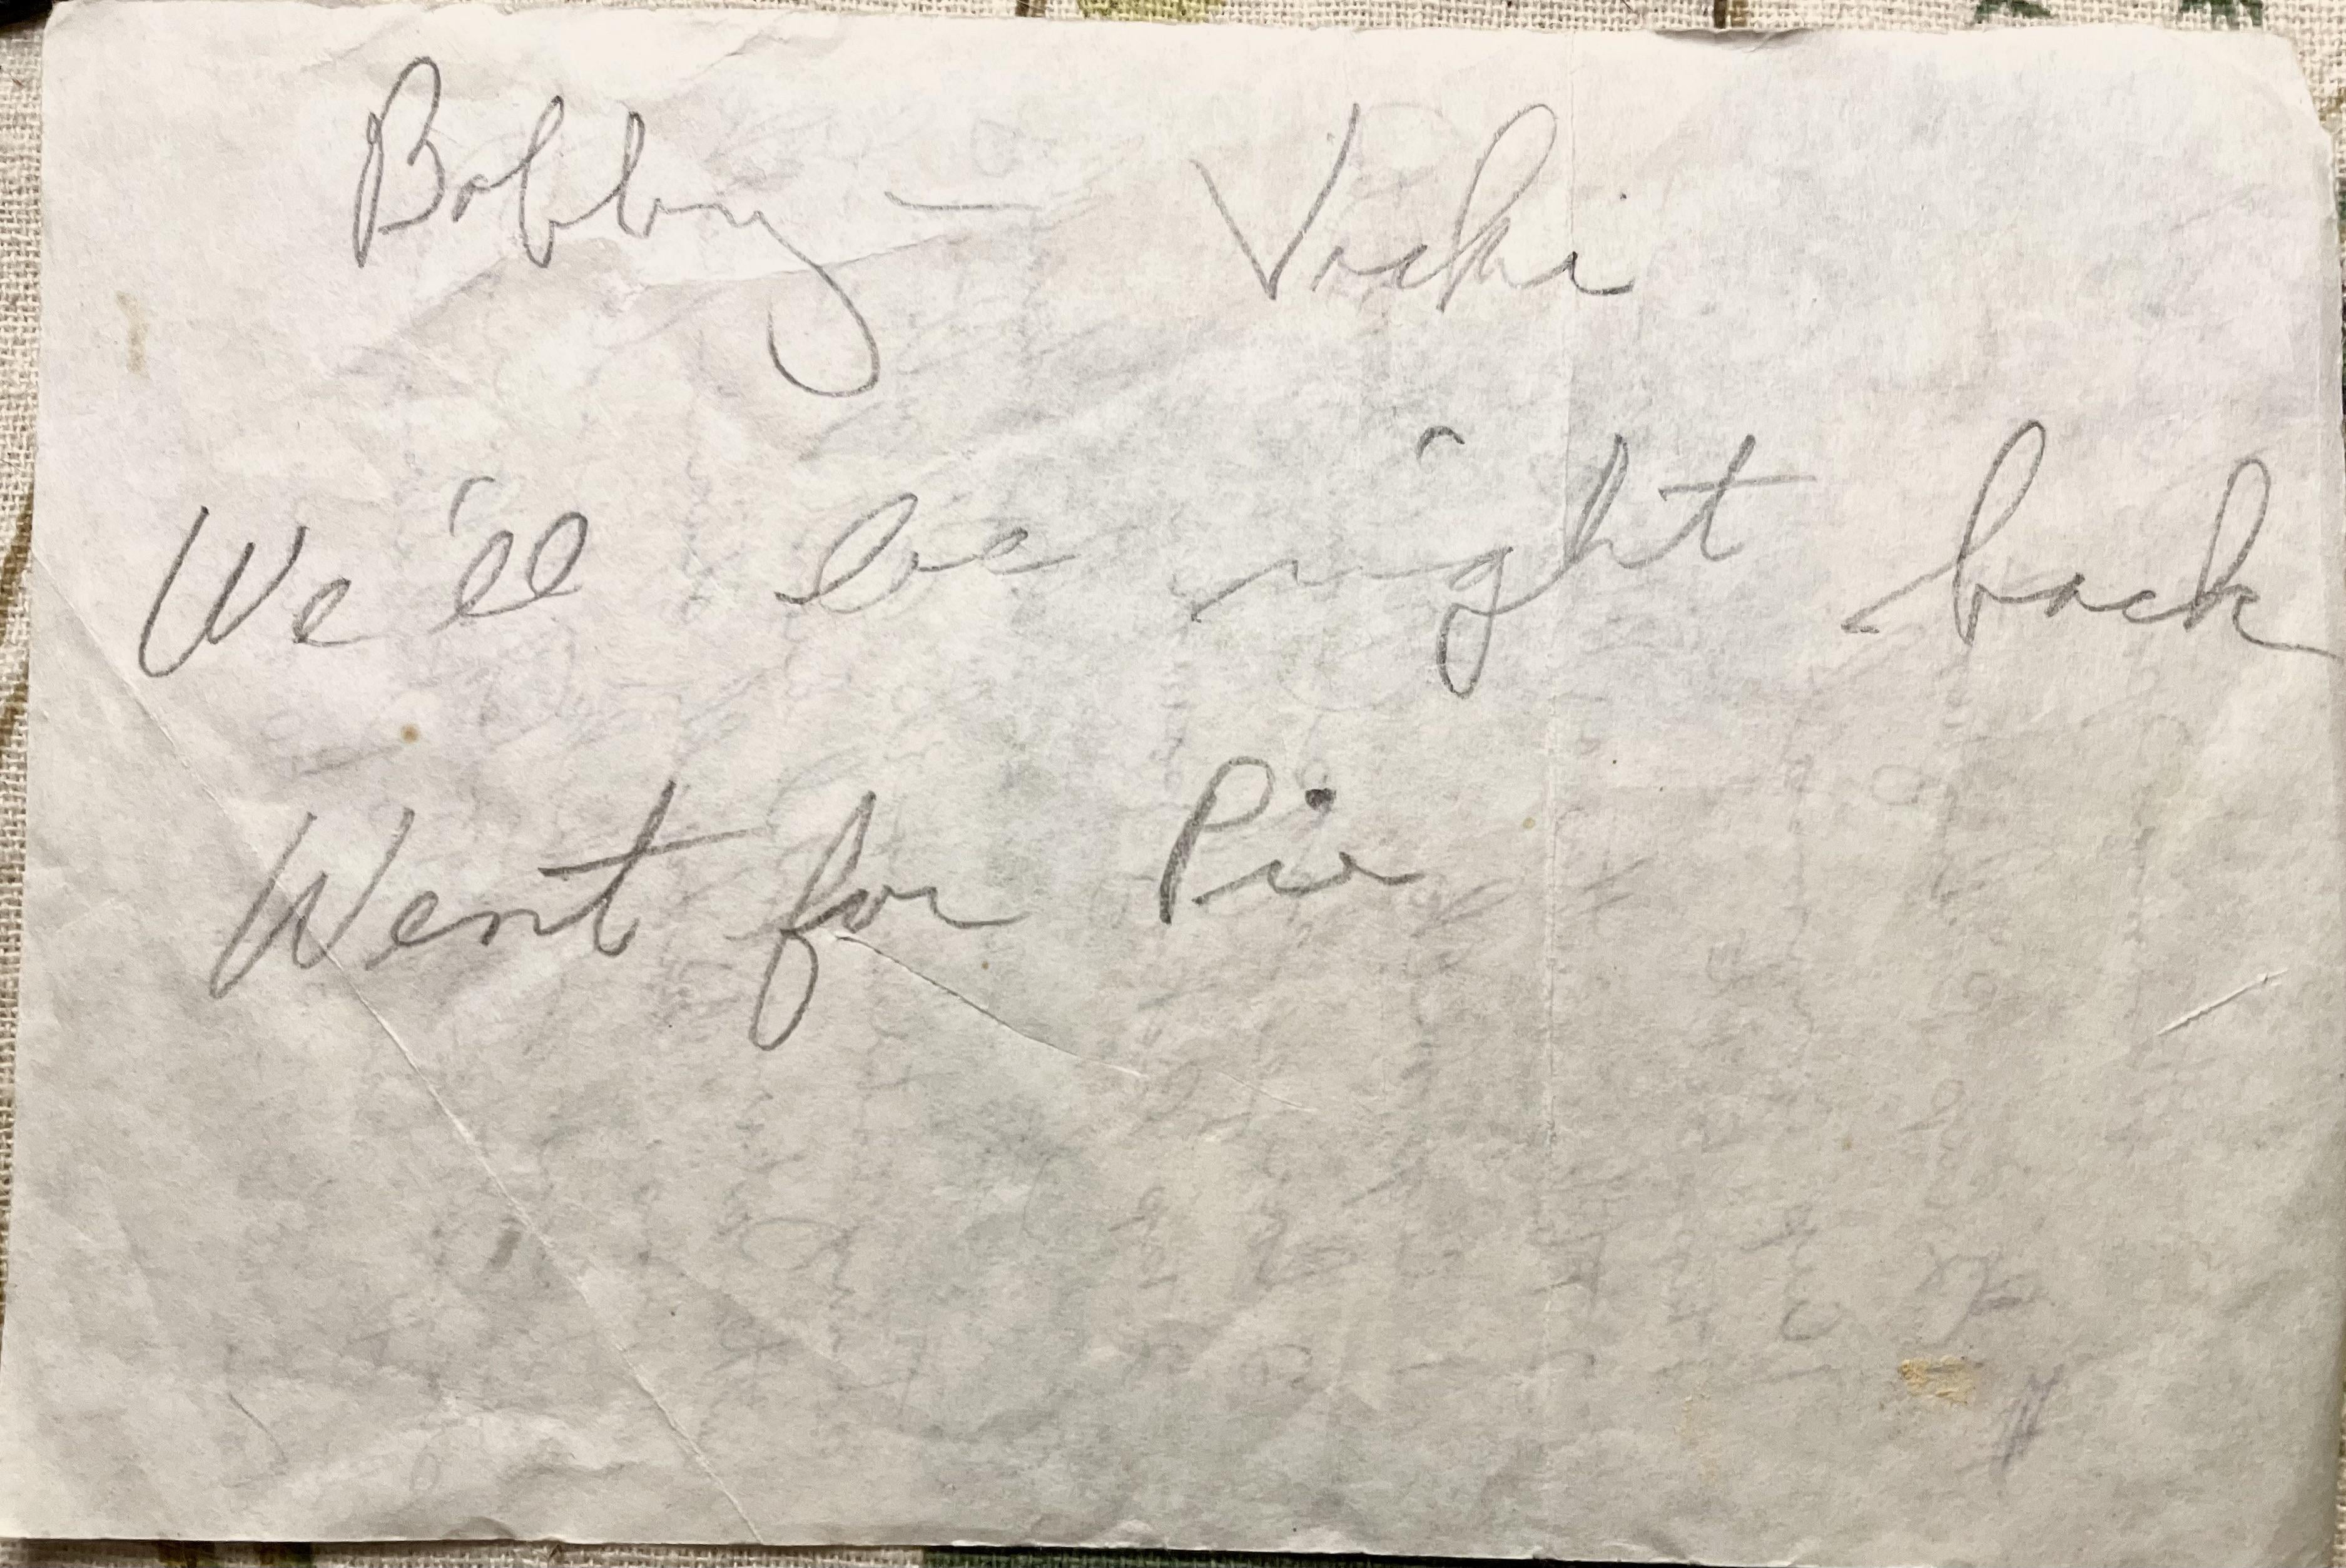 Bobby – Vicki
We'll be right back
Went for Pie